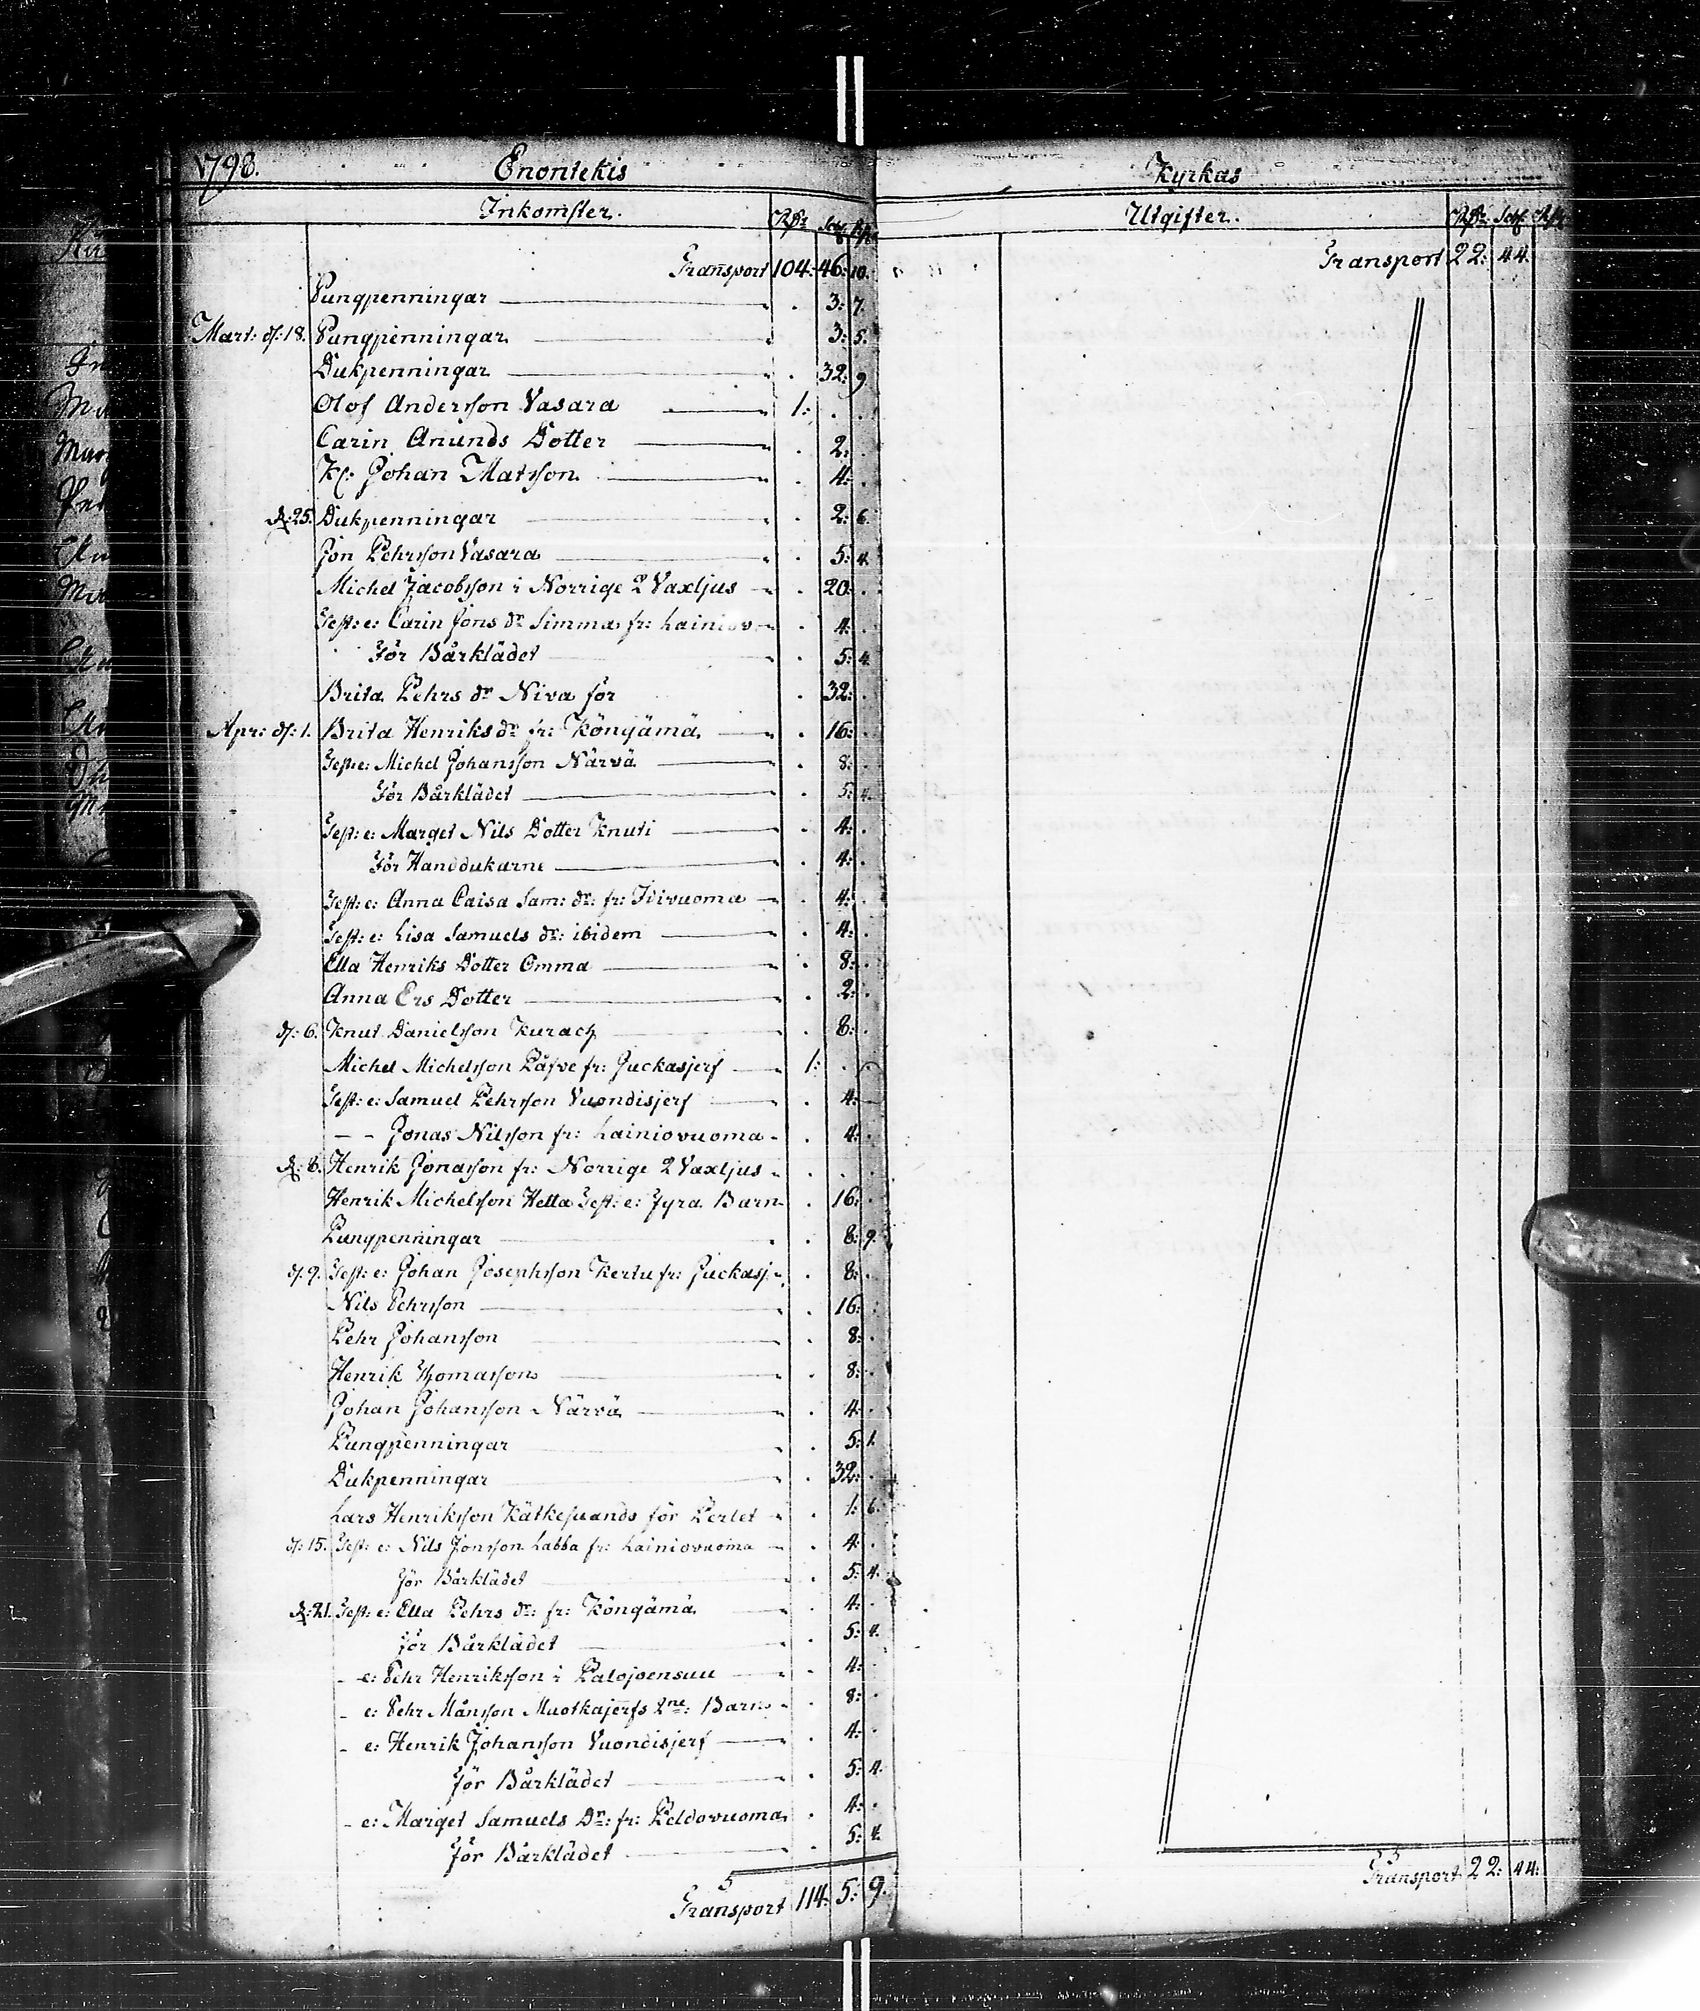 1798. Enontekis
Inkomster. Rdr Sch. Rst.
Transport 104: 46: 10.
Pungpenningar . 3: 7.
Mart: d: 18. Pungpenningar 3: 5.
Dukpenningar . 32: 9
Olof Andersson Vasara 1: . .
Carin Anunds Dotter . 2: .
Kl: Johan Matsson . 4: .
D: 25. Dukpenningar . 2: 6.
Jon Pehrsson Vasara . 5: 4.
Michel Jacobsson i Norrige 2 Vaxljus . 20: .
Test: e: Carin Jons dr Simma fr: Lainiov. . 4: .
För Bårklädet . 5: 4.
Brita Pehrs dr Niva för . 32: .
Apr: d: 1. Brita Henriks dr fr: Köngämä . 16: .
Test: e: Michel Johansson Närvä . 8: .
För Bårklädet . 5: 4.
Test: e: Marget Nils Dotter Knuti . 4: .
För Handdukarne . 4: .
Test: e: Anna Caisa Sam: dr: fr: Idivuoma . 4: .
Test: e: Lisa Samuels dr: ibidem . 4: .
Ella Henriks Dotter Omma . 8: .
Anna Ers Dotter . 2: .
d: 6. Knut Danielsson Kurach . 8: .
Michel Michelsson Påfve fr: Juckasjerf 1: .
Test: e: Samuel Pehrsson Vuondisjerf . 4:
- - Jonas Nilsson fr: Lainiovuoma . 4: .
D: 8. Henrik Jonasson fr: Norrige 2 Vaxljus . . .
Henrik Michelsson Hetta Test: e: Fyra Barn . 16: .
Pungpenningar . 8: 9.
d: 9. Test: e: Johan Josephsson Kertu fr: Juckasj. . 8: .
Nils Pehrsson . 16: .
Pehr Johansson . 8: .
Henrik Thomasson . 8: .
Johan Johansson Närvä . 4: .
Pungpenningar . 5: 1.
Dukpenningar . 32: .
Lars Henriksson Kätkesuando för Perlet . 1: 6.
d: 15. Test: e: Nils Jonsson Labba fr: Lainiovuoma . 4: .
För Bårklädet . 5: 4.
D: 21. Test: e: Ella Pehrs dr: fr: Köngämä . 4: .
För Bårklädet . 5: 4.
- e: Pehr Henriksson i Palojoensuu . 4: .
- e: Pehr Månsson Muotkajerfs 2ne: Barn . 8: .
- e: Henrik Johansson Vuondisjerf . 4: .
För Bårklädet . 5: 4.
- e: Marget Samuels Dr: fr: Peldovuoma . 4: .
För Bårklädet . 5: 4.
Transport 114: 5: 9.
Kyrkas
Utgifter. Rdr Sch. Rst.
Transport 22: 44.
Transport 22: 44: